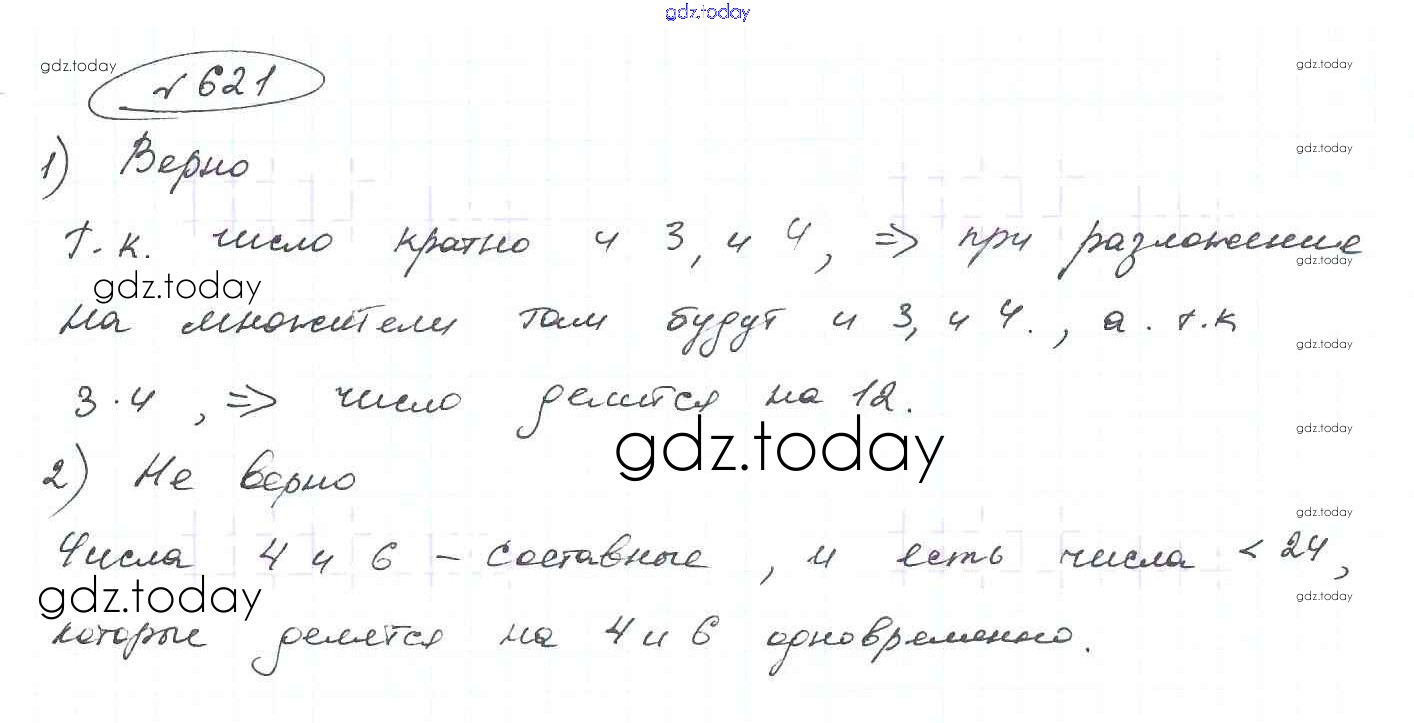 gdz.today
gdz.today
gdz.today
№ 621
gdz.today
1) Верно
т.к. число кратно и 3, и 4, => при разложение
gdz.today
gdz.today
на множители там будут и 3, и 4., а. т.к
gdz.today
3·4, => число делится на 12.
gdz.today
gdz.today
2) Не верно
gdz.today
Числа 4 и 6 – составные, и есть числа < 24,
gdz.today
gdz.today
которые делятся на 4 и 6 одновременно.